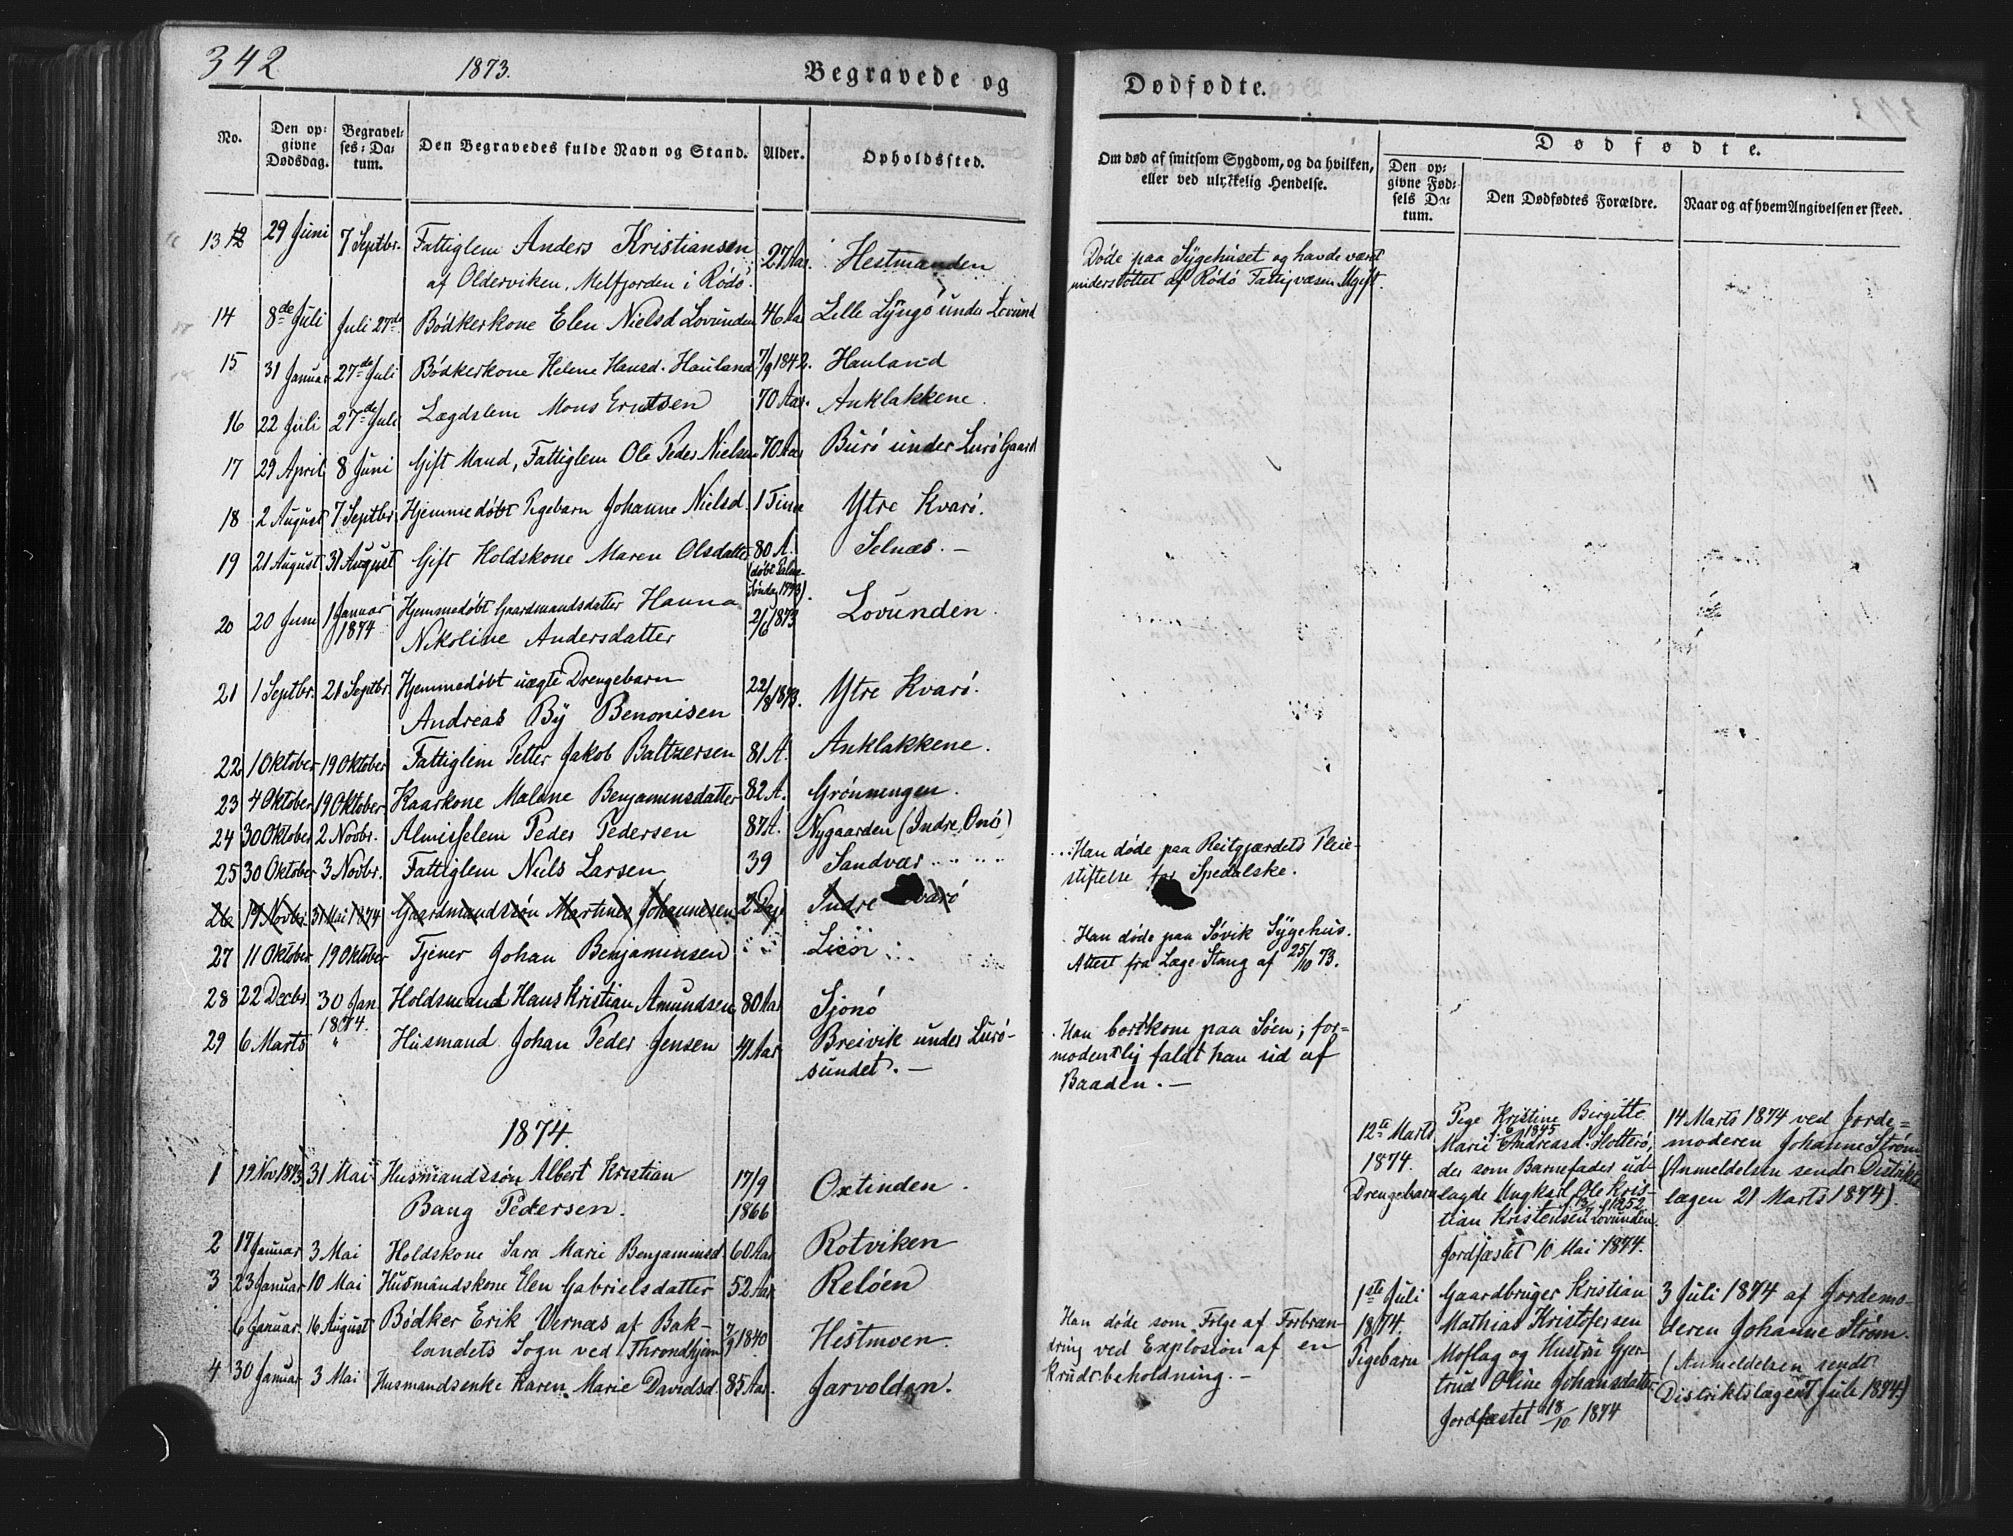 342
1873.
Begravede og
Dødfødte.
No.
Den op-
givne
Dødsdag.
Begravel-
ses-Da-
tum.
Den Begravedes fulde Navn og Stand.
Alder.
Opholdssted.
Om død af smitsom Sygdom, og da hvilken,
eller ved ulykkelig Hendelse.
Dødfødte.
Den op-
givne Fød-
sels Da-
tum.
Den Dødfødtes Forældre.
Naar og af hvem Angivelsen er skeed.
13 29 Juni 7 Septbr. Fattiglem Anders Kristiansen 27 Aar. Hestmanden
af Olderviken, Melfjorden i Rødø.
Døde paa Sygehuset og havde været
understøttet af Rødø Fattigvæsen. Ugift.
14 8de Juli Juli 27de Bødkerkone Elen Nielsd Lovunden 46 Aar Lille Lyngø under Lovund
15 31 Januar 27de Juli Bødkerkone Helene Hansd. Hauland 7/9 1842. Hauland
16 22 Juli 27de Juli Lægdslem Mons Erntsen 70 Aar. Anklakkene.
17 29 April 8 Juni Gift Mand, Fattiglem Ole Peder Nielsen 70 Aar Burø under Lurø Gaard
18 2 August 7 Septbr Hjemmedøbt Pigebarn Johanne Nielsd. 1 Time Ytre Kvarø.
19 21 August 31 August Gift Holdskone Maren Olsdatter 80 A. Selnæs. —
(døbt Palme-
Søndag 1793).
20 20 Juni 1 Januar 1874 Hjemmedøbt Gaardmandsdatter Hanna 2/6 1873 Lovunden.
Nikoline Andersdatter
21 1 Septbr. 21 Septbr. Hjemmedøbt uægte Drengebarn 22/8 1873. Ytre Kvarø.
Andreas By Benonisen
22 1 Oktober 19 Oktober Fattiglem Petter Jakob Baltzersen 81 A. Anklakkene.
23 4 Oktober 19 Oktober Kaarkone Malene Benjaminsdatter 82 A. Grønningen.
24 30 Oktober 2 Novbr. Almisselem Peder Pedersen 87 A. Nygaarden (Indre Onø)
25 30 Oktober 3 Novbr. Fattiglem Niels Larsen 39 Sandvær
Han døde paa Reitgjærdets Pleie-
stiftelse for Spedalske.
26 19 Novbr. 31 Mai 1874 Gaardmandssøn Martines Johannesen 2 Dage Indre Kvarø
27 11 Oktober 19 Oktober Tjener Johan Benjaminsen
Han døde paa Søvik Sygehus.
Attest fra Læge Stang af 25/10 73.
28 22 Decbr 30 Jan 1874. Holdsmand Hans Kristian Amundsen 80 Aar Sjonø
29 6 Marts " Husmand Johan Peder Jensen 41 Aar Breivik under Lurø-
sundet. —
Han bortkom paa Søen; for-
modentlig faldt han ud af
Baaden. —
1874.
1 19 Nov 1873 31 Mai Husmandssøn Albert Kristian 17/9 1866 Oxtinden.
Bang Pedersen.
2 17 Januar 3 Mai Holdskone Sara Marie Benjaminsd 60 Aar Rotviken
3 23 Januar 10 Mai Husmandskone Elen Gabrielsdatter 52 Aar Reløen
6 Januar 16 August Bødker Erik Vernæs af Bak- 1840 Hestmoen.
landets Sogn ved Throndhjem
Han døde som Følge af Forbræn-
dring ved Explosion af en
krudtbeholdning. —
4 30 Januar 3 Mai Husmandsenke Karen Marie Davidsd 85 Aar. Jarvolden.
12te Marts
1874.
Drengebarn
Pige Kristine Birgitte
Marie Andreasd. Hotterø,
der som Barnefader ud-
lagde Ungkarl Ole Kris-
tian Kristensen Lovunden.
Jordfæstet 10 Mai 1874.
14 Marts 1874 ved Jorde-
moderen Johanne Strøm
(Anmeldelsen sendt Distrikts-
lægen 21 Marts 1874).
1ste Juli
1874.
Pigebarn
Gaardbruger Kristian
Mathias Kristofersen
Moflag og Hustru Gjer-
trud Oline Johansdatter
Jordfæstet 18/10 1874
3 Juli 1874 af Jordemo-
deren Johanne Strøm.
(Anmeldelsen sendt
Distriktslægen 7 Juli 1874)